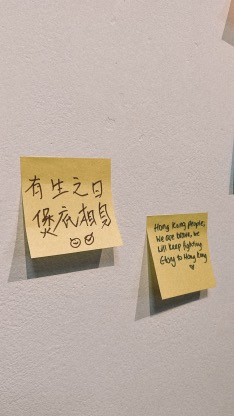 有生之日
煲底相見
Hong Kong people,
We are brave, we
will keep fighting
Glory to Hong Kong